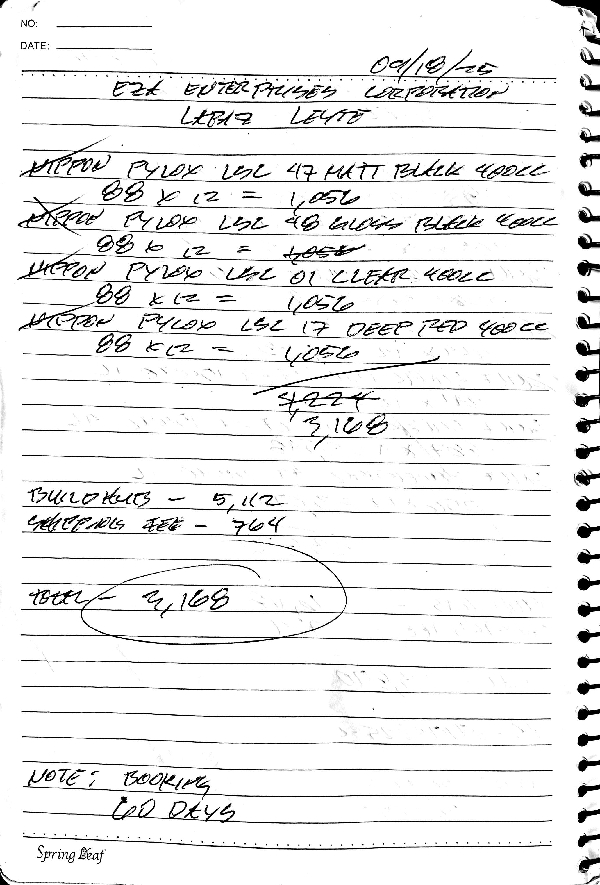 NO:
DATE:
09/18/25
EZA ENTERPRISES CORPORATION
LABAZ LEYTE
NIPPON PYLOX LSL 47 MATT BLACK 400CC
88 x 12 = 1,056
NIPPON PYLOX LSL 48 GLOSS BLACK 400CC
88 x 12 = 1,056
NIPPON PYLOX LSL 01 CLEAR 400CC
88 x 12 = 1,056
NIPPON PYLOX LSL 17 DEEP RED 400CC
88 x 12 = 1,056
4,224
3,168
- 5,112
SHIPPING FEE - 764
TOTAL - 3,168
NOTE: BOOKING
60 DAYS
Spring Leaf